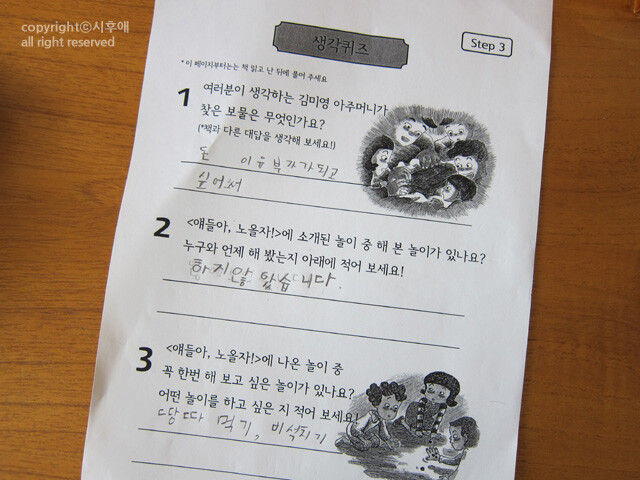 copyrightⓒ시후애
all right reserved
생각퀴즈
Step 3
* 이 페이지부터는 책 읽고 난 뒤에 풀어 주세요
1 여러분이 생각하는 김미영 아주머니가
찾은 보물은 무엇인가요?
(*책과 다른 대답을 생각해 보세요!)
돈 이유 부자가 되고
싶어서
2 <얘들아, 노올자!>에 소개된 놀이 중 해 본 놀이가 있나요?
누구와 언제 해 봤는지 아래에 적어 보세요!
하지 않았습니다.
3 <얘들아, 노올자!>에 나온 놀이 중
꼭 한번 해 보고 싶은 놀이가 있나요?
어떤 놀이를 하고 싶은 지 적어 보세요!
땅따 먹기, 비석치기